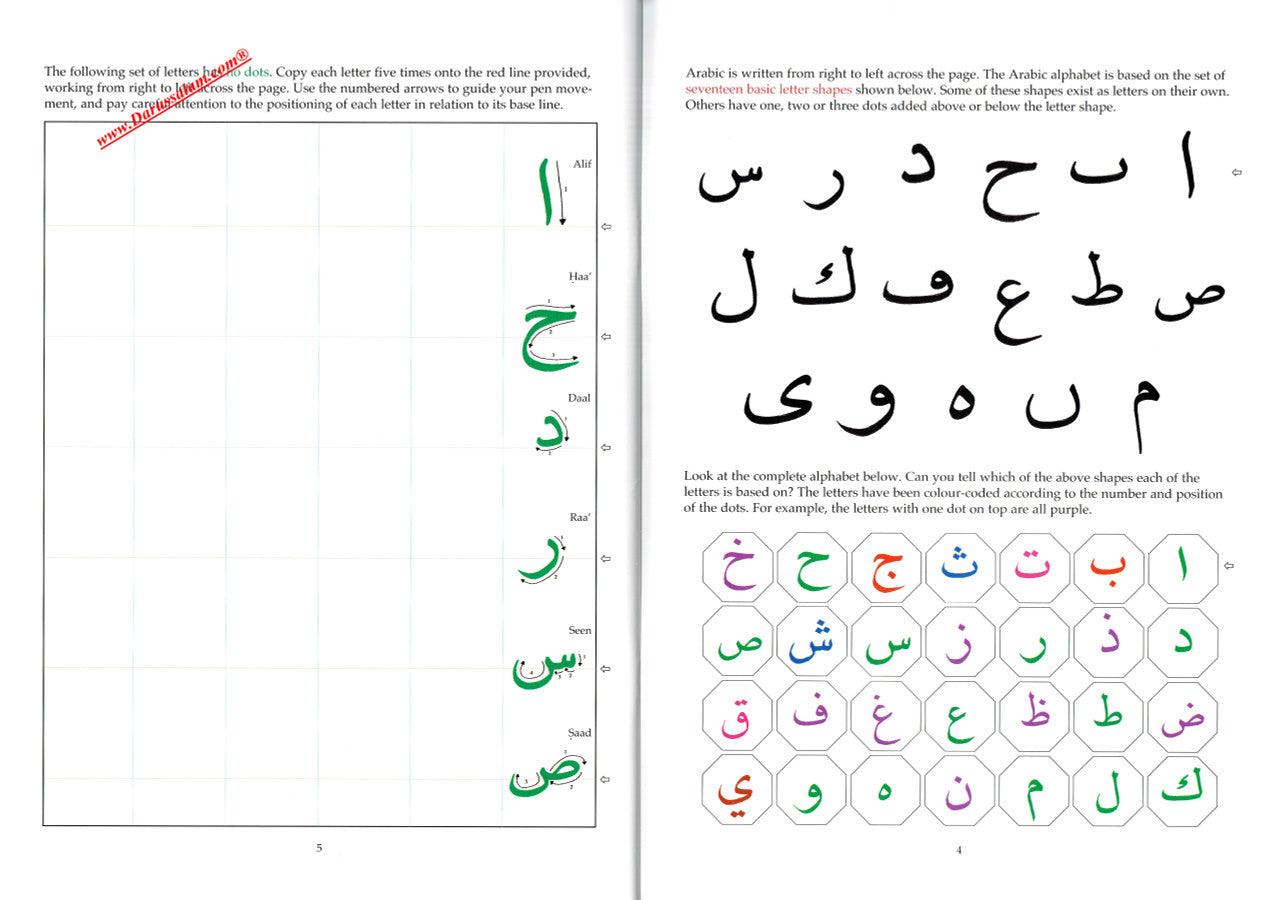 Arabic is written from right to left across the page. The Arabic alphabet is based on the set of
seventeen basic letter shapes shown below. Some of these shapes exist as letters on their own.
Others have one, two or three dots added above or below the letter shape.
ا ٮ ح د ر س
ص ط ع ڡ ك ل
م ں ه و ى
Look at the complete alphabet below. Can you tell which of the above shapes each of the
letters is based on? The letters have been colour-coded according to the number and position
of the dots. For example, the letters with one dot on top are all purple.
ا ب ت ث ج ح خ
د ذ ر ز س ش ص
ض ط ظ ع غ ف ق
ك ل م ن ه و ي
4
www.Darussalam.com®
The following set of letters have no dots. Copy each letter five times onto the red line provided,
working from right to left across the page. Use the numbered arrows to guide your pen move-
ment, and pay careful attention to the positioning of each letter in relation to its base line.
Alif
ا 1
Ḥaa'
ح 1 2 3
Daal
د 1 2
Raa'
ر 1 2
Seen
س 1 2 3 4
Ṣaad
ص 1 2 3
5